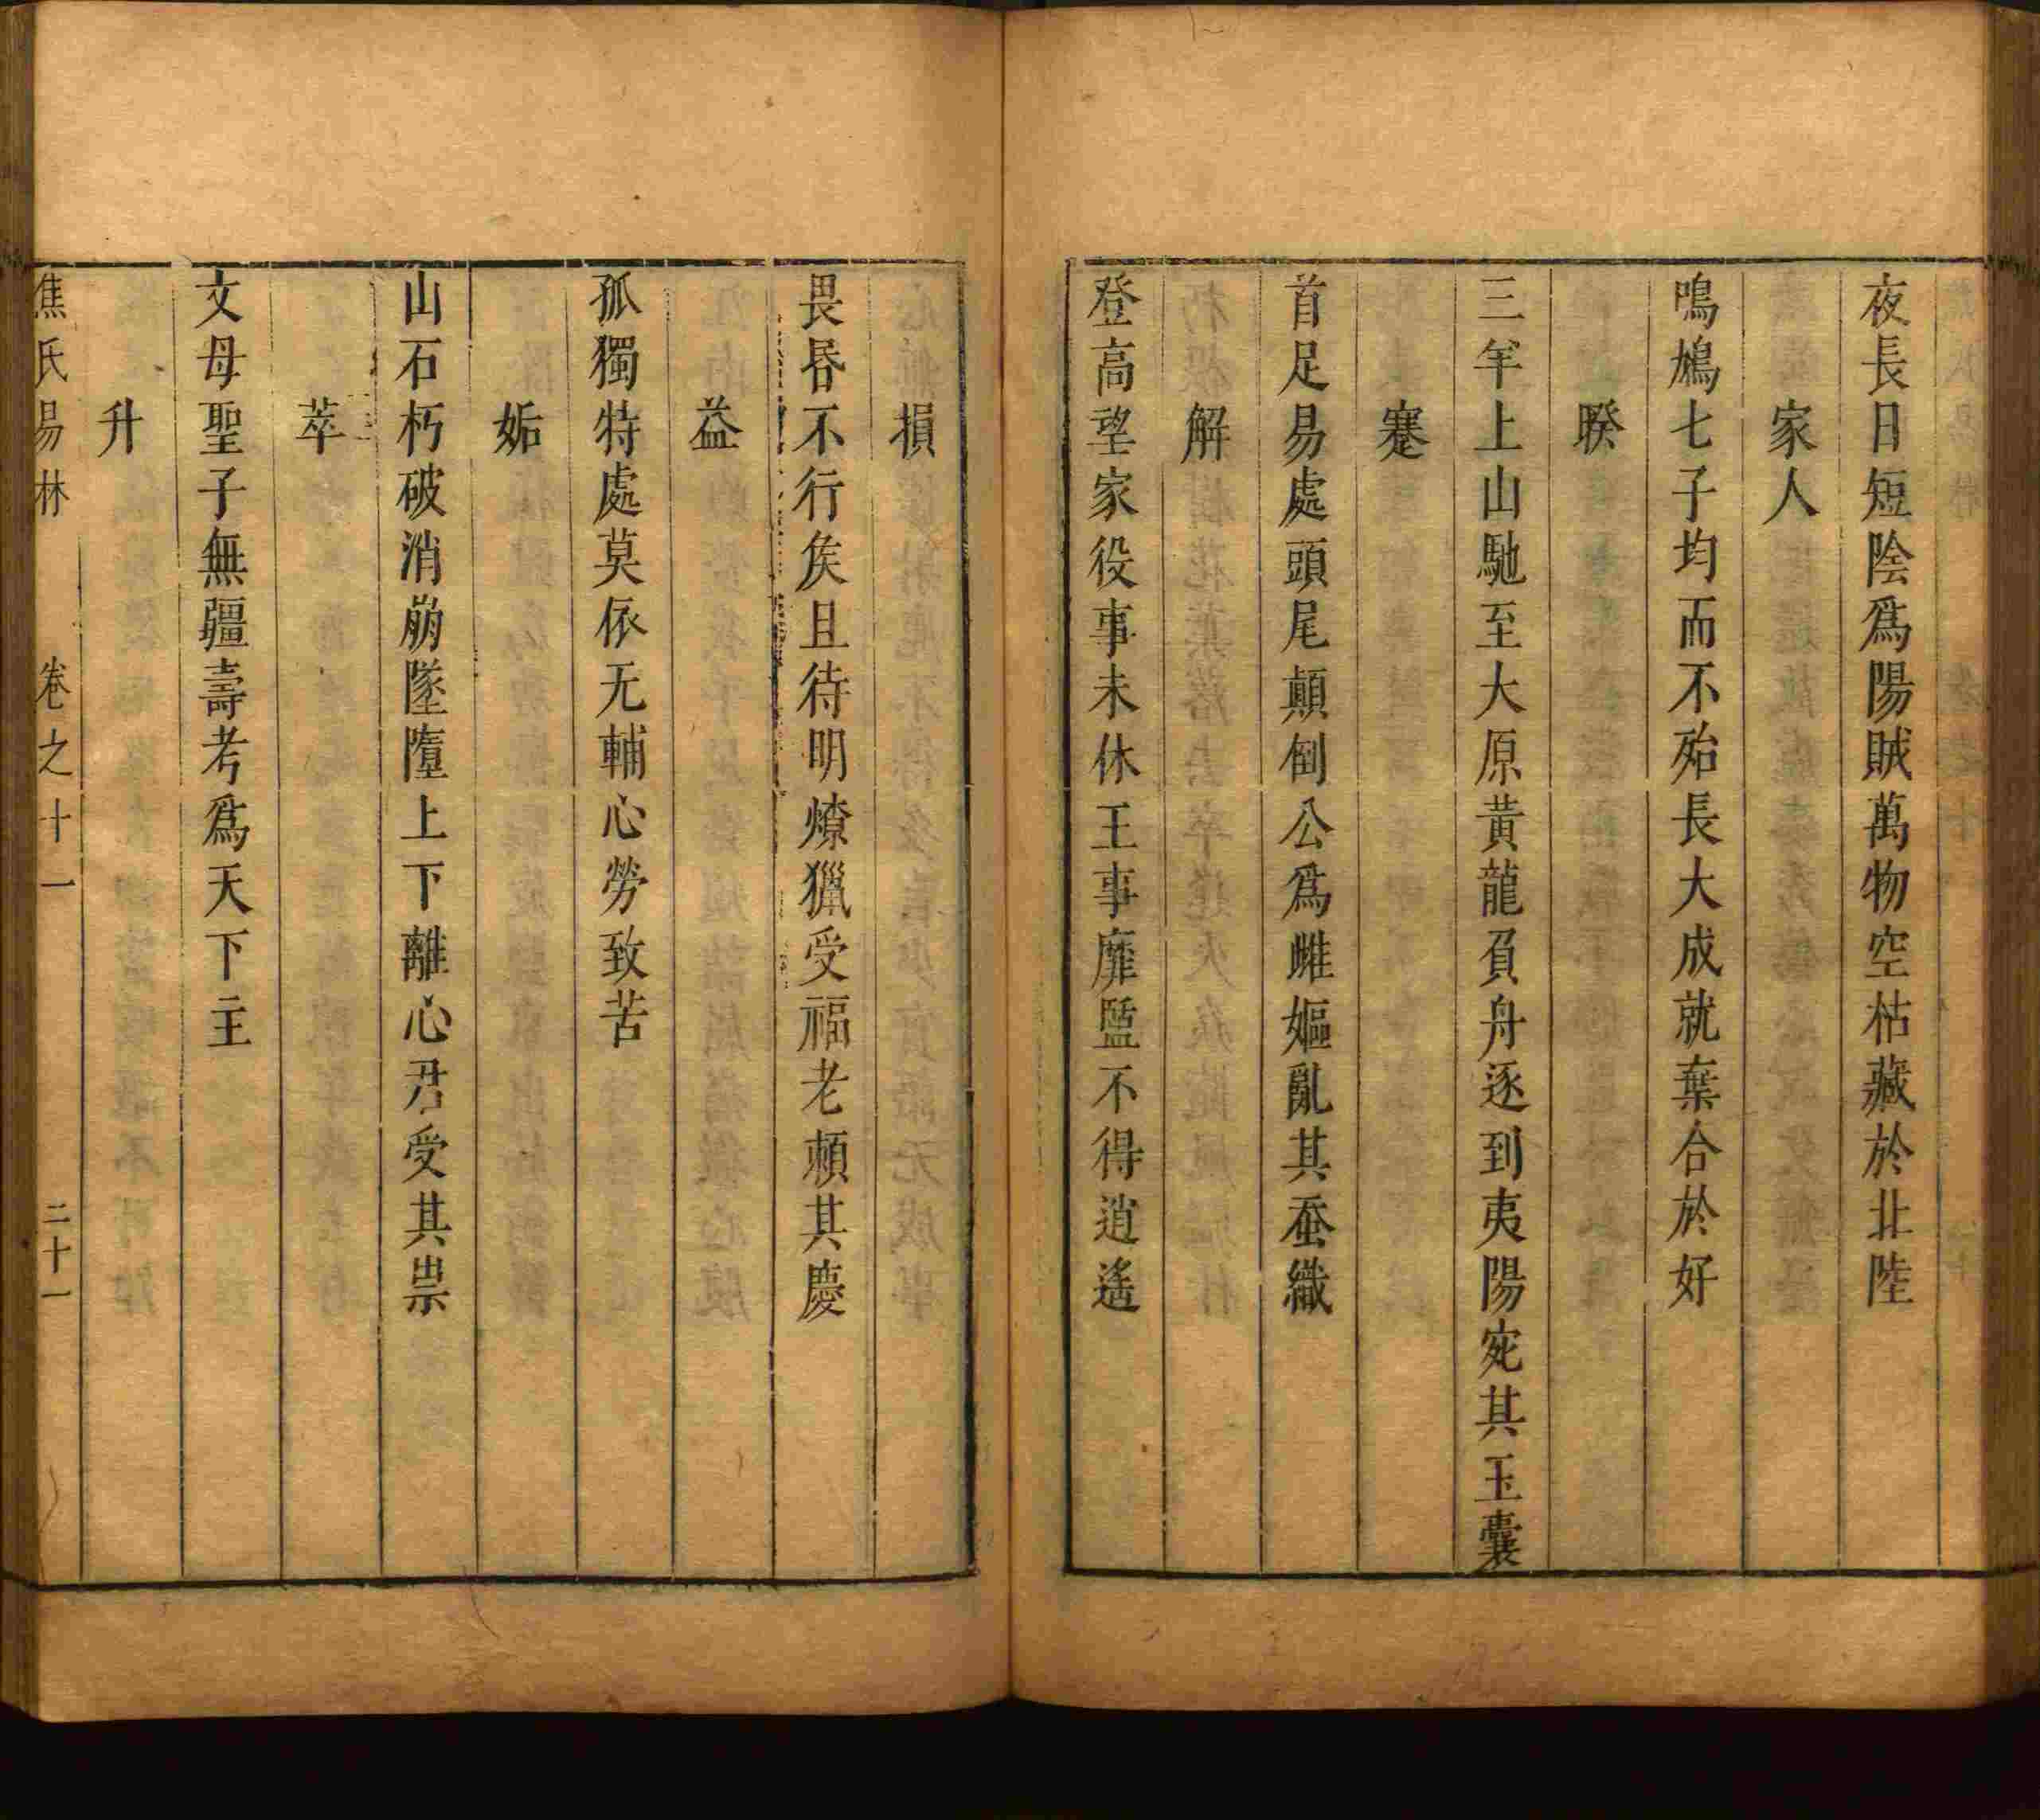 夜長日短陰爲陽賊萬物空枯藏於北陸
家人
鳴鳩七子均而不殆長大成就棄合於好
睽
三年上山馳至大原黃龍負舟逐到夷陽宛其玉囊
蹇
首足易處頭尾顛倒公爲雌嫗亂其蚕織
解
登高望家役事未休王事靡盬不得逍遙
損
畏昏不行矦且待明燎獵受福老賴其慶
益
孤獨特處莫依无輔心勞致苦
姤
山石朽破消崩墜墮上下離心君受其祟
萃
文母聖子無疆壽考爲天下主
升
焦氏易林 卷之十一 二十一